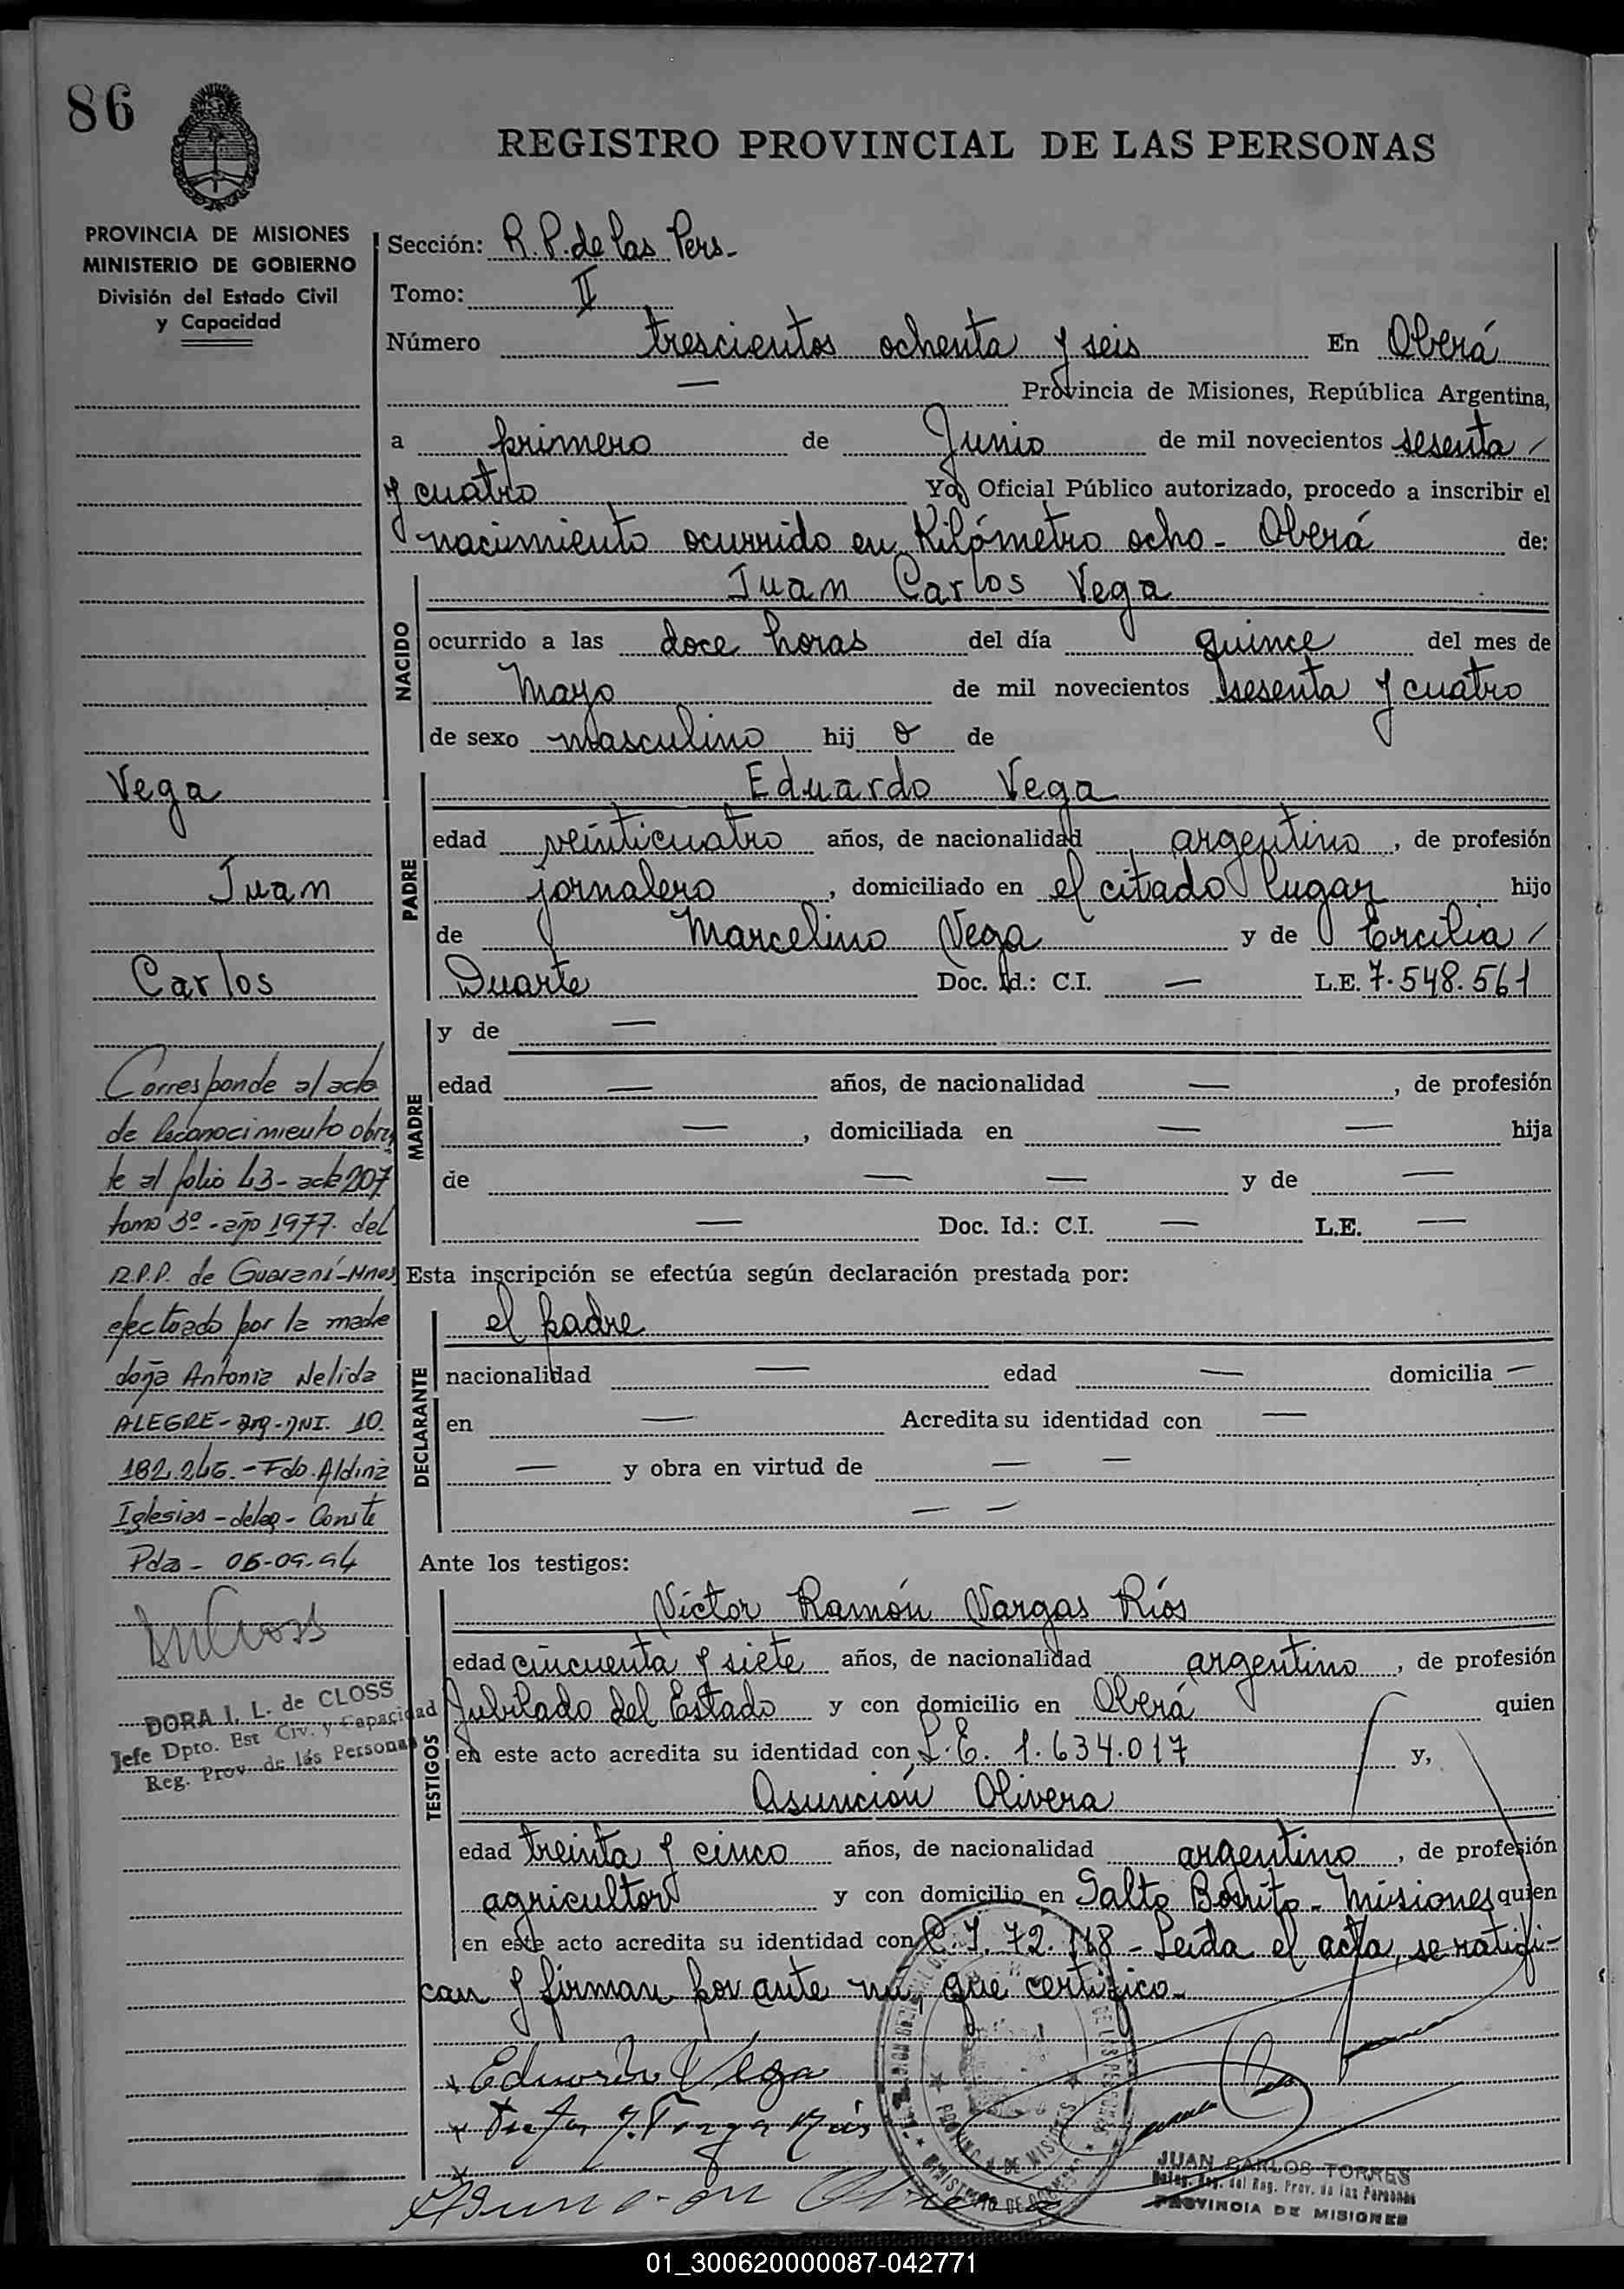 86
REGISTRO PROVINCIAL DE LAS PERSONAS
PROVINCIA DE MISIONES
MINISTERIO DE GOBIERNO
División del Estado Civil
y Capacidad
Sección: R. P. de las Pers-
Tomo: II
Número trescientos ochenta y seis En Oberá
— Provincia de Misiones, República Argentina,
a primero de Junio de mil novecientos sesenta /
y cuatro Yo, Oficial Público autorizado, procedo a inscribir el
nacimiento ocurrido en Kilómetro ocho - Oberá de:
NACIDO
Juan Carlos Vega
ocurrido a las doce horas del día quince del mes de
Mayo de mil novecientos sesenta y cuatro
de sexo masculino hij o de
PADRE
Eduardo Vega
edad veinticuatro años, de nacionalidad argentino, de profesión
jornalero, domiciliado en el citado lugar hijo
de Marcelino Vega y de Ercilia /
Duarte Doc. Id.: C.I. — L.E. 7.548.561
MADRE
y de —
edad — años, de nacionalidad —, de profesión
—, domiciliada en — — hija
de — — y de —
— Doc. Id.: C.I. — L.E. —
Esta inscripción se efectúa según declaración prestada por:
DECLARANTE
el padre
nacionalidad — edad — domicilia —
en — Acredita su identidad con —
— y obra en virtud de — —
— —
Ante los testigos:
TESTIGOS
Víctor Ramón Vargas Ríos
edad cincuenta y siete años, de nacionalidad argentino, de profesión
Jubilado del Estado y con domicilio en Oberá quien
en este acto acredita su identidad con L.E. 1.634.017 y,
Asunción Olivera
edad treinta y cinco años, de nacionalidad argentino, de profesión
agricultor y con domicilio en Salto Bonito - Misiones quien
en este acto acredita su identidad con C.I. 72. - Leída el acta, se ratifi-
can y firman por ante mí, que certifico.-
Vega
Juan
Carlos
Corresponde al acta
de Reconocimiento obran
te al folio 43 - acta 207
tomo 3º - año 1977. del
R.P.P. de Guaraní - Mnes
efectuado por la madre
doña Antonia Nelida
ALEGRE - arg - DNI. 10.
182.246. - Fdo. Aldina
Iglesias - deleg - Conste
Pdas - 06-09-94
DORA I. L. de CLOSS
Jefe Dpto. Est Civ. y Capacidad
Reg. Prov. de las Personas
x Eduardo Vega
JUAN CARLOS TORRES
Deleg. del Reg. Prov. de las Personas
PROVINCIA DE MISIONES
01_300620000087-042771